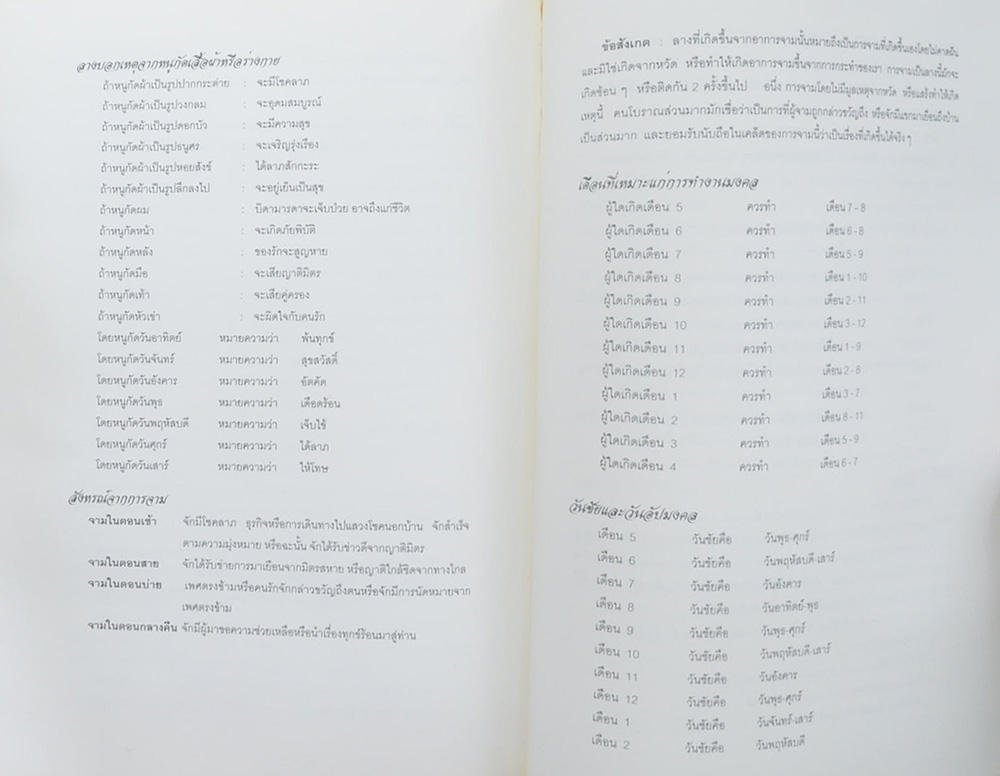 ลางบอกเหตุจากหนูกัดเสื้อผ้าหรือร่างกาย
ถ้าหนูกัดผ้าเป็นรูปปากกระต่าย : จะมีโชคลาภ
ถ้าหนูกัดผ้าเป็นรูปวงกลม : จะอุดมสมบูรณ์
ถ้าหนูกัดผ้าเป็นรูปดอกบัว : จะมีความสุข
ถ้าหนูกัดผ้าเป็นรูปธนูศร : จะเจริญรุ่งเรือง
ถ้าหนูกัดผ้าเป็นรูปหอยสังข์ : ได้ลาภสักกะระ
ถ้าหนูกัดผ้าเป็นรูปลึกลงไป : จะอยู่เย็นเป็นสุข
ถ้าหนูกัดผม : บิดามารดาจะเจ็บป่วย อาจถึงแก่ชีวิต
ถ้าหนูกัดหน้า : จะเกิดภัยพิบัติ
ถ้าหนูกัดหลัง : ของรักจะสูญหาย
ถ้าหนูกัดมือ : จะเสียญาติมิตร
ถ้าหนูกัดเท้า : จะเสียคู่ครอง
ถ้าหนูกัดหัวเข่า : จะผิดใจกับคนรัก
โดยหนูกัดวันอาทิตย์ หมายความว่า พ้นทุกข์
โดยหนูกัดวันจันทร์ หมายความว่า สุขสวัสดิ์
โดยหนูกัดวันอังคาร หมายความว่า อัตคัด
โดยหนูกัดวันพุธ หมายความว่า เดือดร้อน
โดยหนูกัดวันพฤหัสบดี หมายความว่า เจ็บไข้
โดยหนูกัดวันศุกร์ หมายความว่า ได้ลาภ
โดยหนูกัดวันเสาร์ หมายความว่า ให้โทษ
สังหรณ์จากการจาม
จามในตอนเช้า จักมีโชคลาภ ธุรกิจหรือการเดินทางไปแสวงโชคนอกบ้าน จักสำเร็จ
ตามความมุ่งหมาย หรือฉะนั้น จักได้รับข่าวดีจากญาติมิตร
จามในตอนสาย จักได้รับข่ายการมาเยือนจากมิตรสหาย หรือญาติใกล้ชิดจากทางไกล
จามในตอนบ่าย เพศตรงข้ามหรือคนรักจักกล่าวขวัญถึงตนหรือจักมีการนัดหมายจาก
เพศตรงข้าม
จามในตอนกลางคืน จักมีผู้มาขอความช่วยเหลือหรือนำเรื่องทุกข์ร้อนมาสู่ท่าน
ข้อสังเกต : ลางที่เกิดขึ้นจากอาการจามนั้นหมายถึงเป็นการจามที่เกิดขึ้นเองโดยไม่คาดฝัน
และมิใช่เกิดจากหวัด หรือทำให้เกิดอาการจามขึ้นจากการกระทำของเรา การจามเป็นลางนี้มักจะ
เกิดซ้อน ๆ หรือติดกัน 2 ครั้งขึ้นไป อนึ่ง การจามโดยไม่มีมูลเหตุจากหวัด หรือแสร้งทำให้เกิด
เหตุนี้ คนโบราณส่วนมากมักเชื่อว่าเป็นการที่ผู้จามถูกกล่าวขวัญถึง หรือจักมีแขกมาเยือนถึงบ้าน
เป็นส่วนมาก และยอมรับนับถือในเคล็ดของการจามนี้ว่าเป็นเรื่องที่เกิดขึ้นได้จริง ๆ
เดือนที่เหมาะแก่การทำงานมงคล
ผู้ใดเกิดเดือน 5 ควรทำ เดือน 7-8
ผู้ใดเกิดเดือน 6 ควรทำ เดือน 6-8
ผู้ใดเกิดเดือน 7 ควรทำ เดือน 5-9
ผู้ใดเกิดเดือน 8 ควรทำ เดือน 1-10
ผู้ใดเกิดเดือน 9 ควรทำ เดือน 2-11
ผู้ใดเกิดเดือน 10 ควรทำ เดือน 3-12
ผู้ใดเกิดเดือน 11 ควรทำ เดือน 1-9
ผู้ใดเกิดเดือน 12 ควรทำ เดือน 2-8
ผู้ใดเกิดเดือน 1 ควรทำ เดือน 3-7
ผู้ใดเกิดเดือน 2 ควรทำ เดือน 8-11
ผู้ใดเกิดเดือน 3 ควรทำ เดือน 5-9
ผู้ใดเกิดเดือน 4 ควรทำ เดือน 6-7
วันชัยและวันอัปมงคล
เดือน 5 วันชัยคือ วันพุธ-ศุกร์
เดือน 6 วันชัยคือ วันพฤหัสบดี-เสาร์
เดือน 7 วันชัยคือ วันอังคาร
เดือน 8 วันชัยคือ วันอาทิตย์-พุธ
เดือน 9 วันชัยคือ วันพุธ-ศุกร์
เดือน 10 วันชัยคือ วันพฤหัสบดี-เสาร์
เดือน 11 วันชัยคือ วันอังคาร
เดือน 12 วันชัยคือ วันพุธ-ศุกร์
เดือน 1 วันชัยคือ วันจันทร์-เสาร์
เดือน 2 วันชัยคือ วันพฤหัสบดี